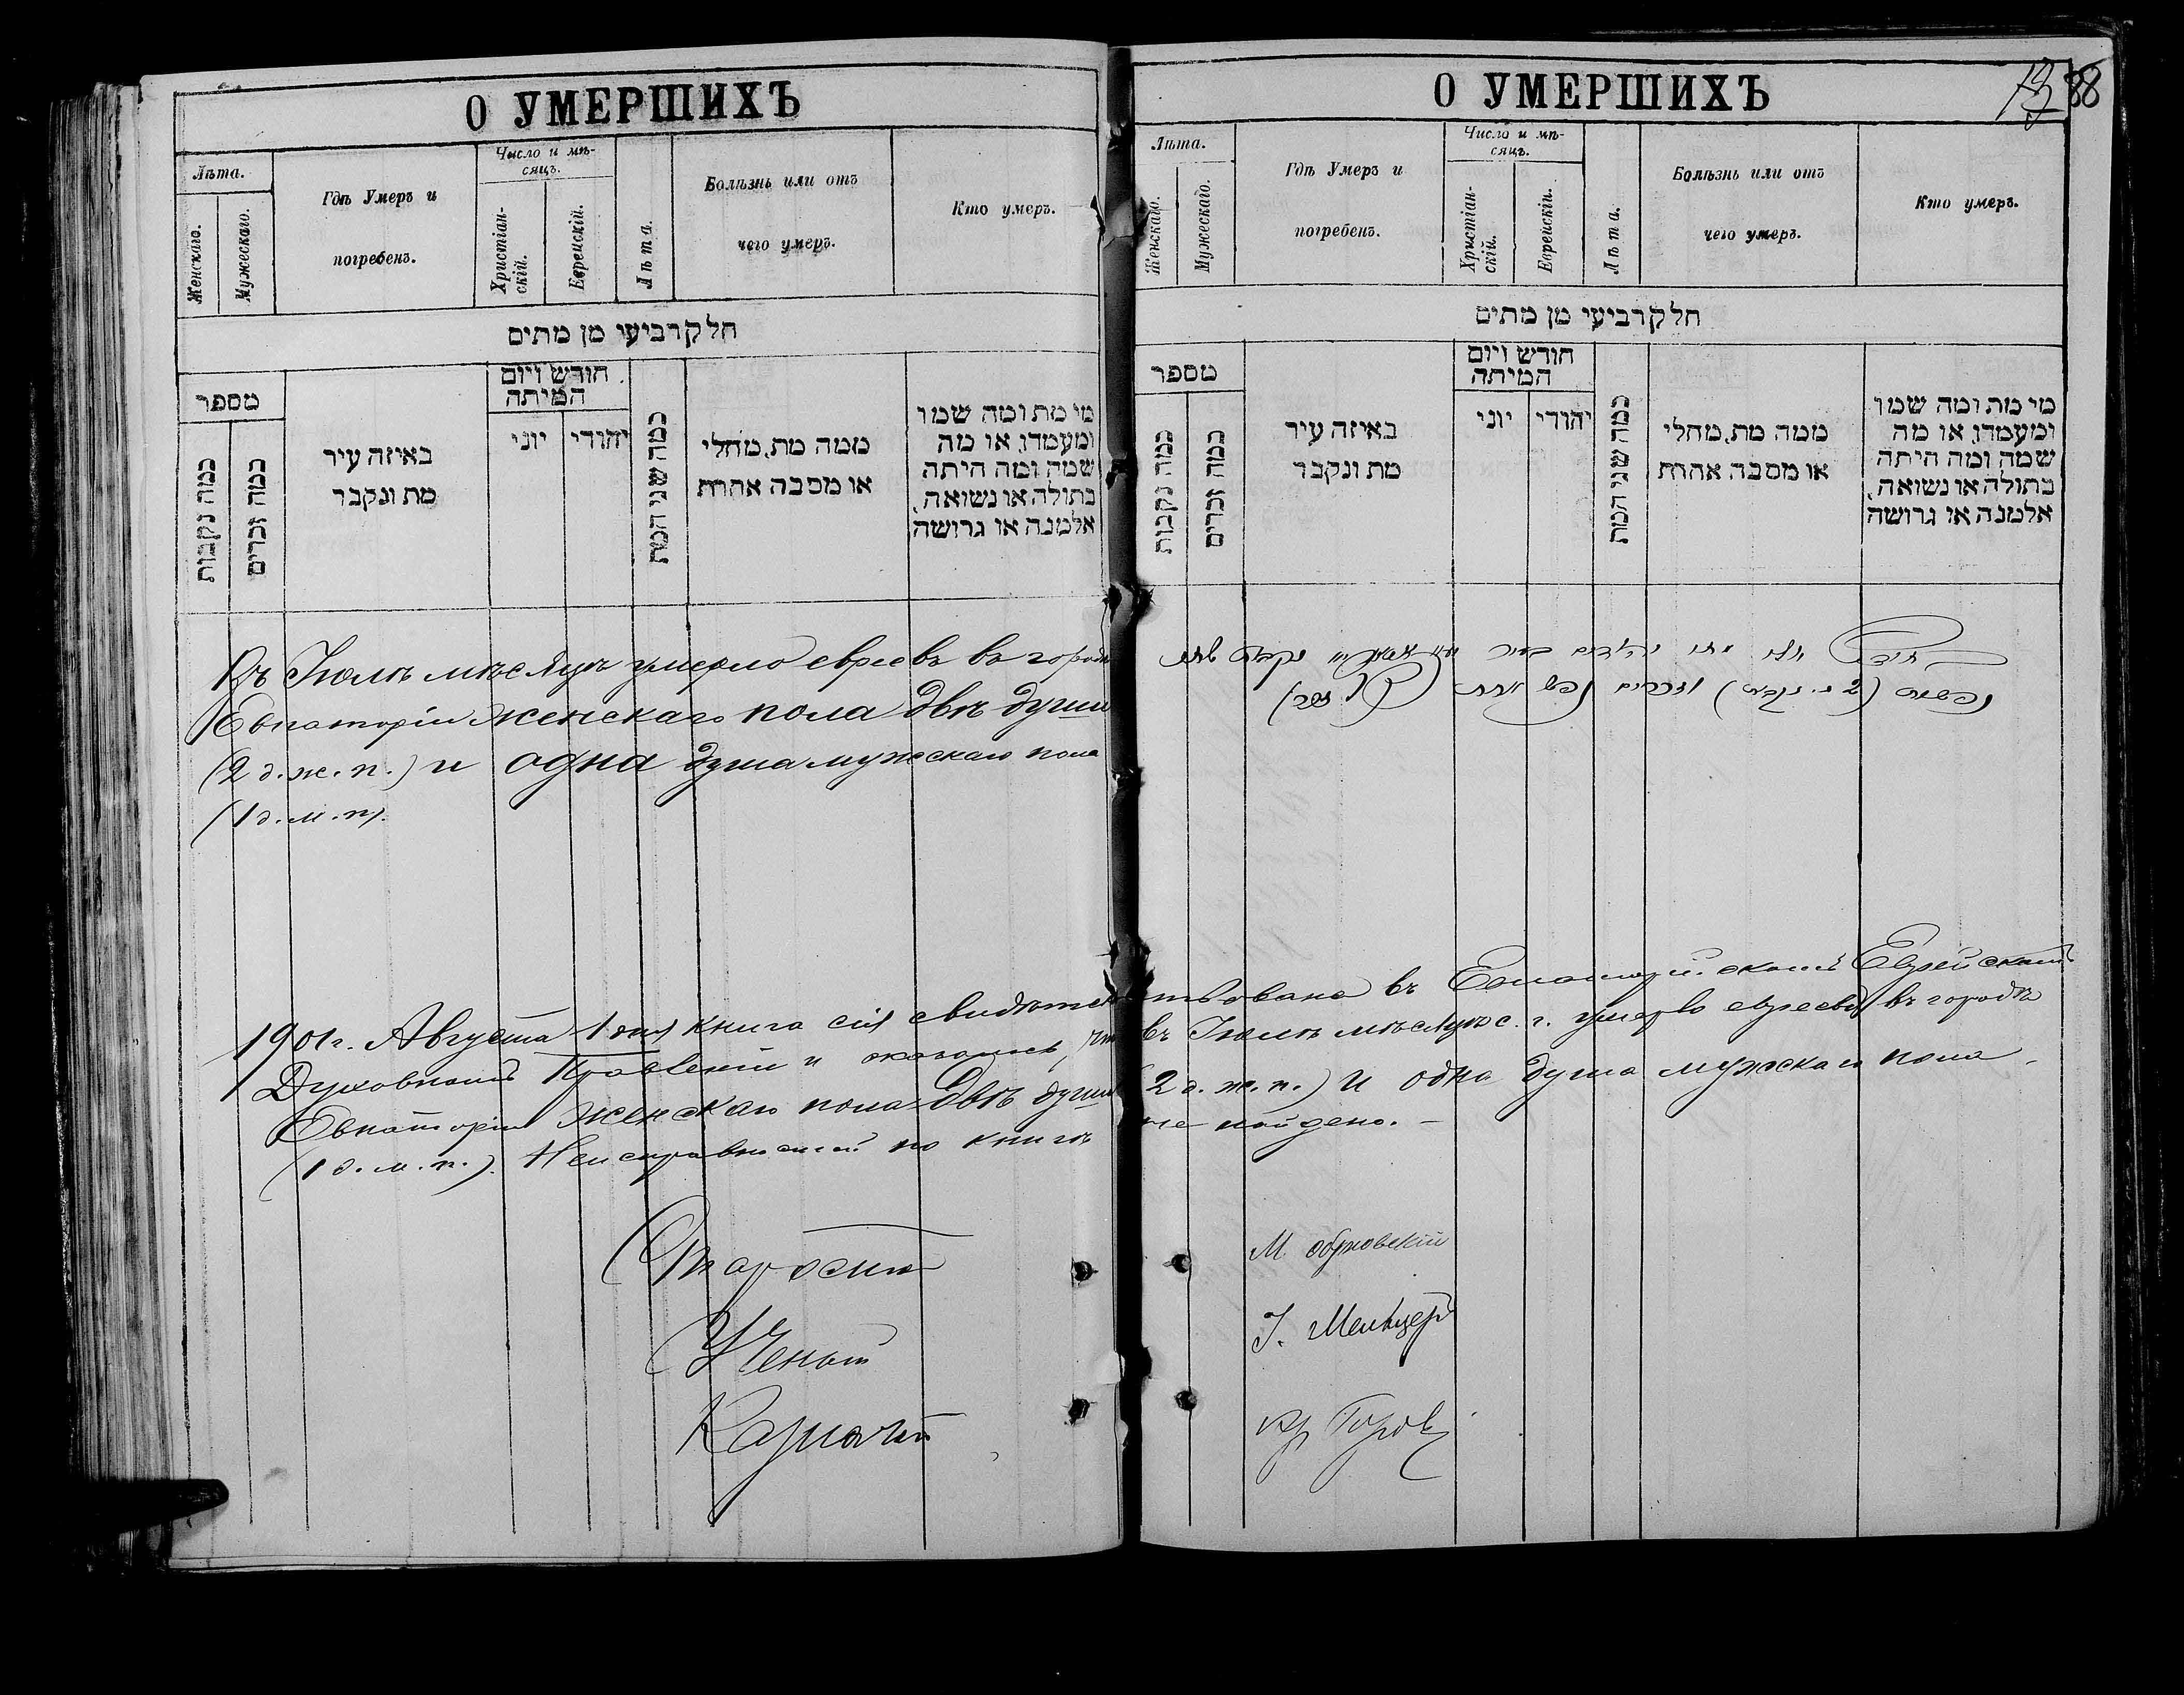 О УМЕРШИХЪ
Лѣта.
Женскаго.
Мужескаго.
Гдѣ Умеръ и
погребенъ.
Число и мѣ-
сяцъ.
Христіан-
скій.
Еврейскій.
Лѣта.
Болѣзнь или отъ
чего умеръ.
Кто умеръ.
חלק רביעי מן מתים
מספר
כמה נקבות
כמה זכרים
באיזה עיר
מת ונקבר
חודש ויום
המיתה
יוני
יהודי
כמה שני המת
ממה מת, מחלי
או מסבה אחרת
מי מת ומה שמו
ומעמדו, או מה
שמה ומה היתה
בתולה או נשואה,
אלמנה או גרושה
Въ Іюлѣ мѣсяцѣ умерло евреевъ въ городѣ
Евпаторіи женскаго пола двѣ души
(2 д. ж. п.) и одна душа мужескаго пола
(1 д. м. п).
О УМЕРШИХЪ
88
Лѣта.
Женскаго.
Мужескаго.
Гдѣ Умеръ и
погребенъ.
Число и мѣ-
сяцъ.
Христіан-
скій.
Еврейскій.
Лѣта.
Болѣзнь или отъ
чего умеръ.
Кто умеръ.
חלק רביעי מן מתים
מספר
כמה נקבות
כמה זכרים
באיזה עיר
מת ונקבר
חודש ויום
המיתה
יוני
יהודי
כמה שני המת
ממה מת, מחלי
או מסבה אחרת
מי מת ומה שמו
ומעמדו, או מה
שמה ומה היתה
בתולה או נשואה,
אלמנה או גרושה
1901 г. Августа 1 дня книга сія свидѣтельствована въ Евпаторійскомъ Еврейскомъ
Духовномъ Правленіи и оказалось, что въ Іюлѣ мѣсяцѣ с. г. умерло евреевъ въ городѣ
Евпаторіи женскаго пола двѣ души (2 д. ж. п.) и одна душа мужскаго пола
(1 д. м. п.). Неисправностей по книгѣ не найдено. –
Староста
Ученый
І. Мельцеръ
Казначей